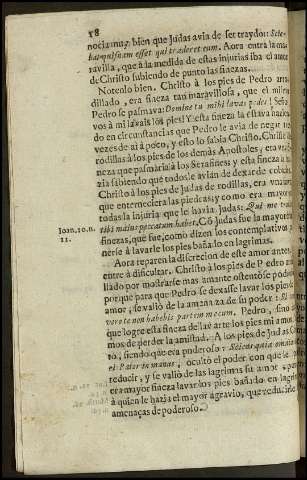 58
nocia muy bien que Judas avia de ser traydor: Scie-
bat quisnam esset qui traderet eum. Aora entra la ma-
ravilla, que à la medida de estas injurias iba el amor
de Christo subiendo de punto las finezas.
Notenlo bien. Christo à los pies de Pedro arro-
dillado, era fineza tan maravillosa, que el mismo
Pedro se pasmava: Domine tu mihi lavas pedes? Señor
vos à mi lavais los pies? Y esta fineza la estava hazien-
do en circunstancias que Pedro le avia de negar tres
vezes de ai à poco, y esto lo sabia Christo. Christo de
rodillas à los pies de los demàs Apostoles, era
neza que pasmaria à los Serafines y esta fineza la
zia sabiendo que todos le avian de dexar de cobardes
Christo à los pies de Judas de rodillas, era
que enterneciera las piedras; y como era mayor
todas la injuria que le havia Judas: Qui me tradidit
Ioan. 19. n.
11.
tibi maius peccatum habet. Cõ Judas fue la mayor
finezas, que fue, como dizen los contemplativos
nerse à lavarle los pies bañado en lagrimas.
Aora reparen la discrecion de este amor antes
entre à dificultar. Christo à los pies de Pedro
llado por mostrarse mas amante ostentòse poderoso
porque para que Pedro se dexasse lavar los pies de
amor, se valiò de la amenaza de su poder: Si non
vero te non habebis partem mecum. Pedro, sino
que logre esta fineza de lavarte los pies mi amor, he
mos de perder la amistad. A los pies de Judas Chris-
to, siendo que era poderoso: Sciens quia omnia dedit
ei Pater in manus, ocultò el poder con que le
reducir, y se valiò de las lagrimas su amor,
era mayor fineza lavar los pies bañado en lagrimas
à quien le hazia el mayor agravio, que reducirle
amenaças de poderoso.